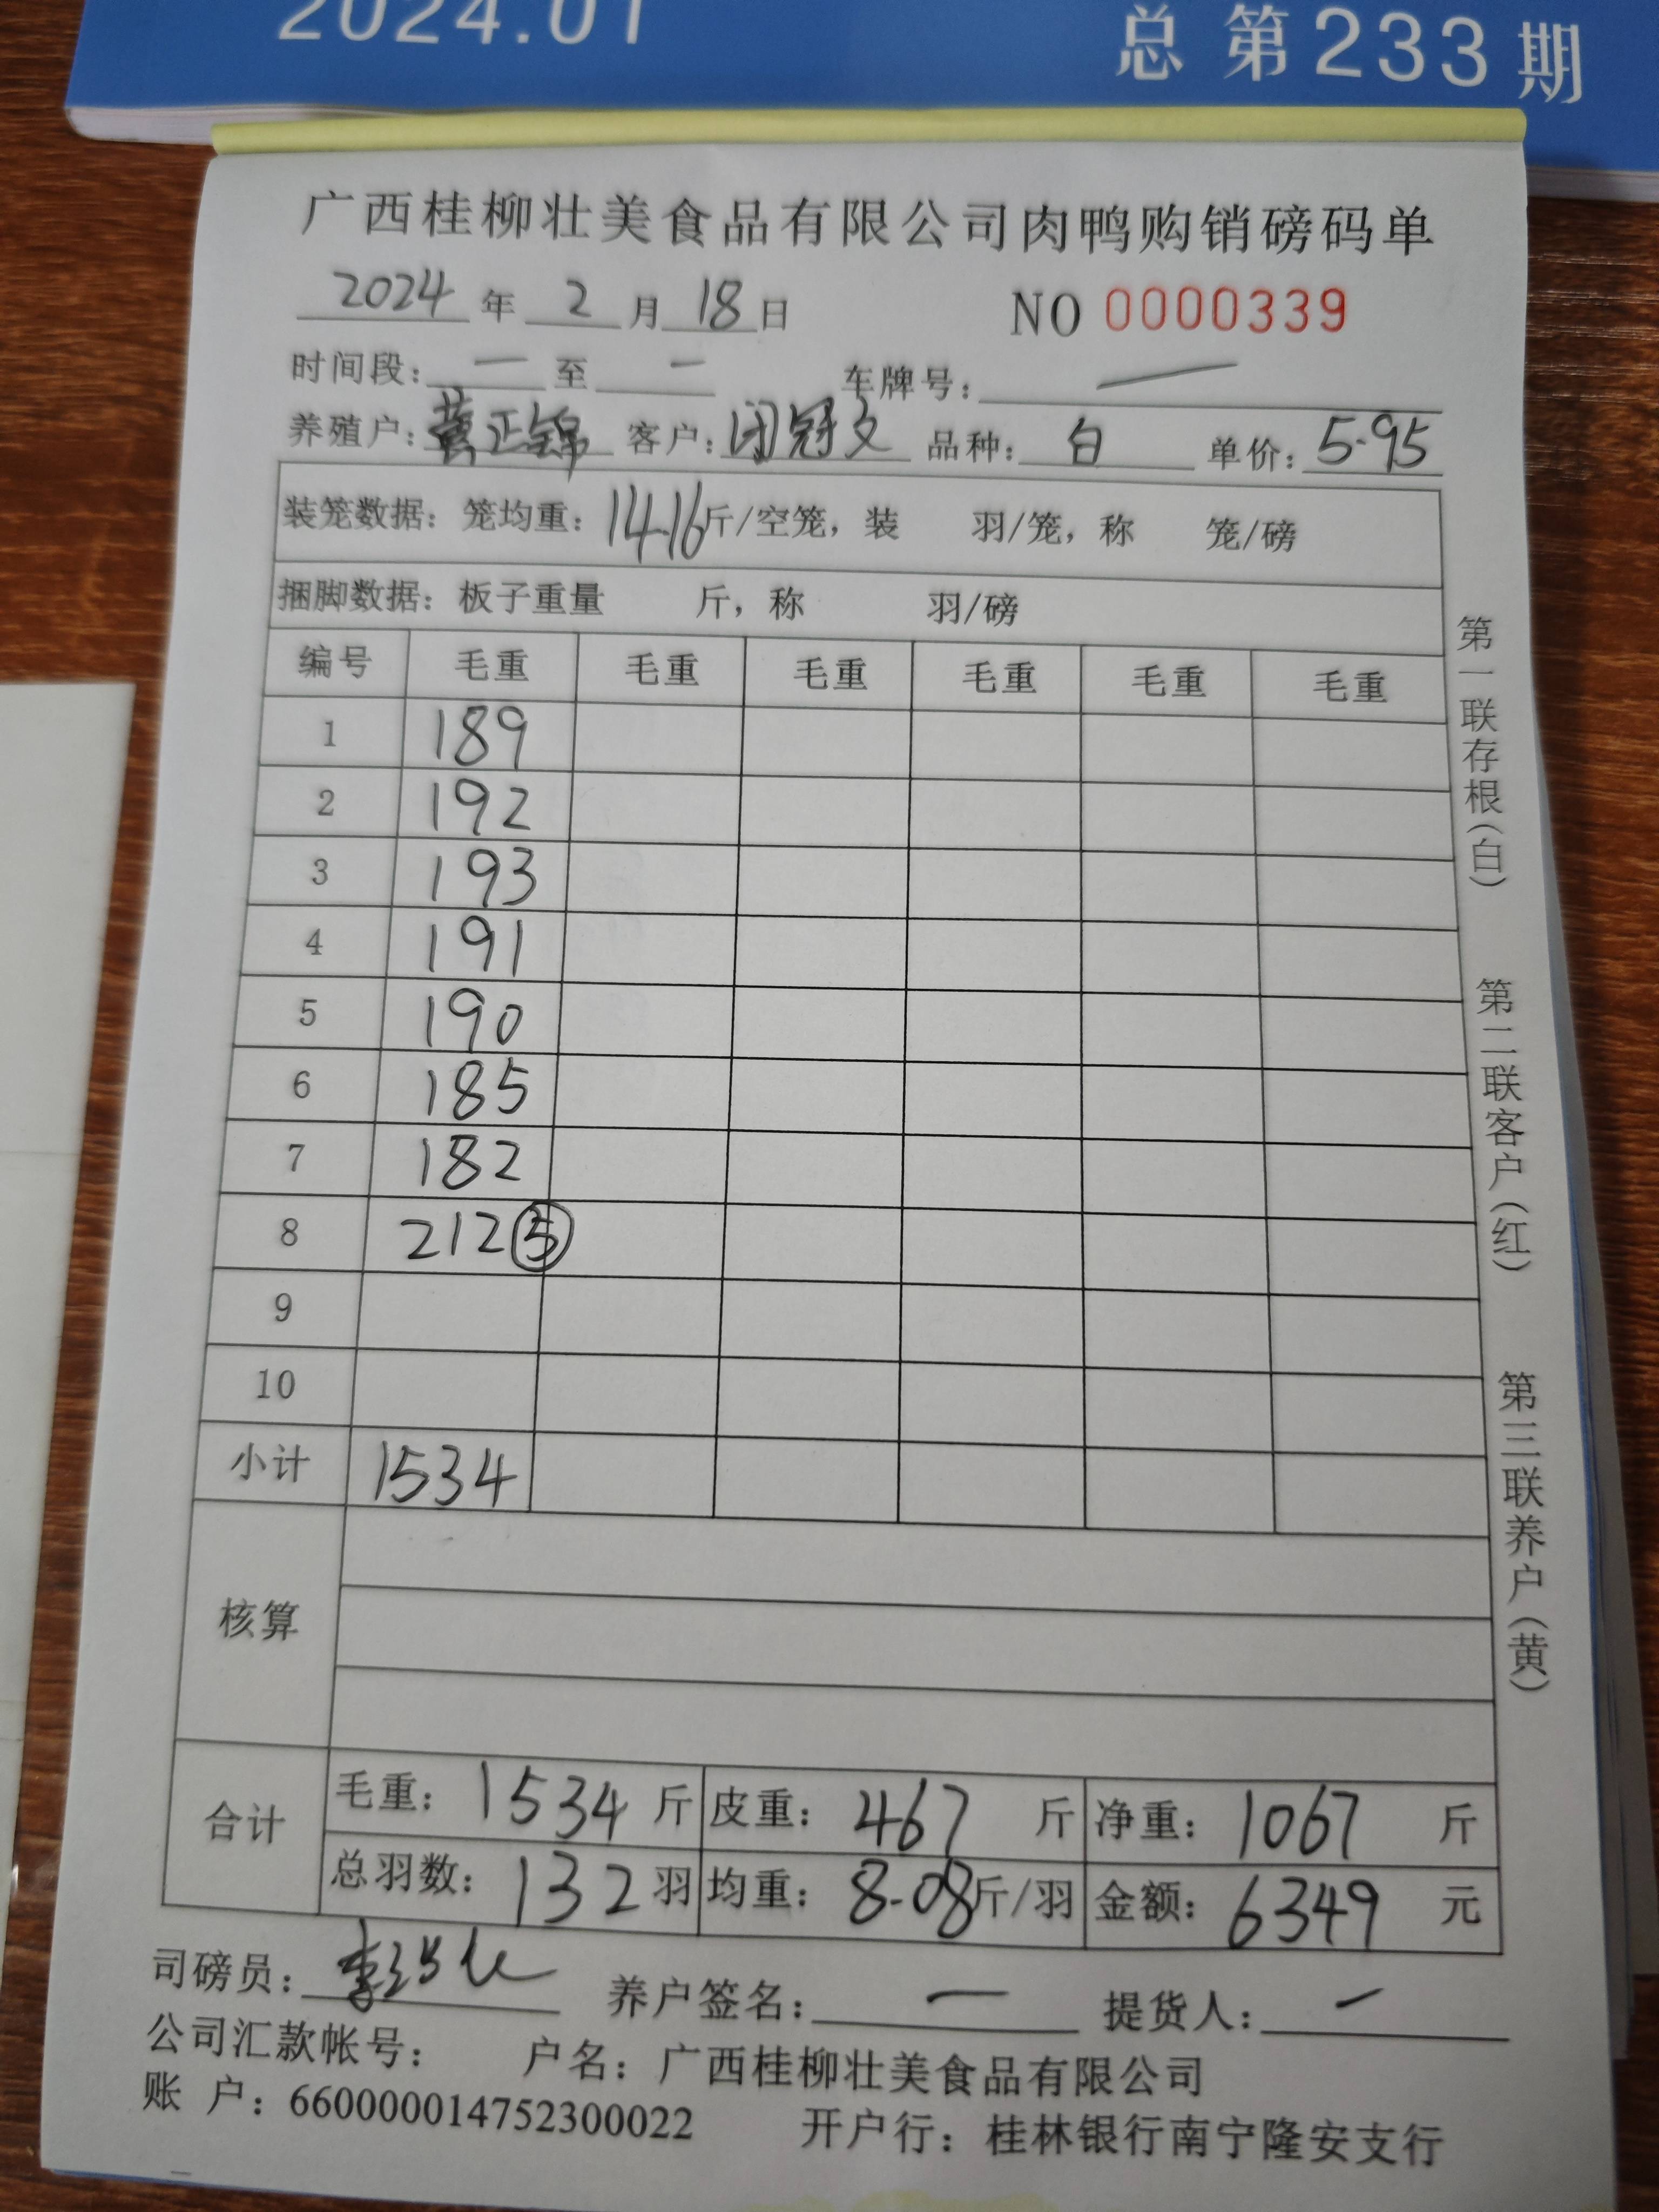 2024.01
总第233期
广西桂柳壮美食品有限公司肉鸭购销磅码单
2024年2月18日 NO 0000339
时间段：一至一 车牌号：一
养殖户：黄正锦 客户：闭冠文 品种：白 单价：5.95
装笼数据：笼均重：14.16斤/空笼，装 羽/笼，称 笼/磅
捆脚数据：板子重量 斤，称 羽/磅
编号 毛重 毛重 毛重 毛重 毛重 毛重
1 189
2 192
3 193
4 191
5 190
6 185
7 182
8 212⑤
9
10
小计 1534
核算
合计 毛重：1534斤 皮重：467斤 净重：1067斤
总羽数：132羽 均重：8.08斤/羽 金额：6349元
司磅员： 养户签名：一 提货人：一
公司汇款帐号： 户名：广西桂柳壮美食品有限公司
账 户：660000014752300022 开户行：桂林银行南宁隆安支行
第一联存根（白）
第二联客户（红）
第三联养户（黄）